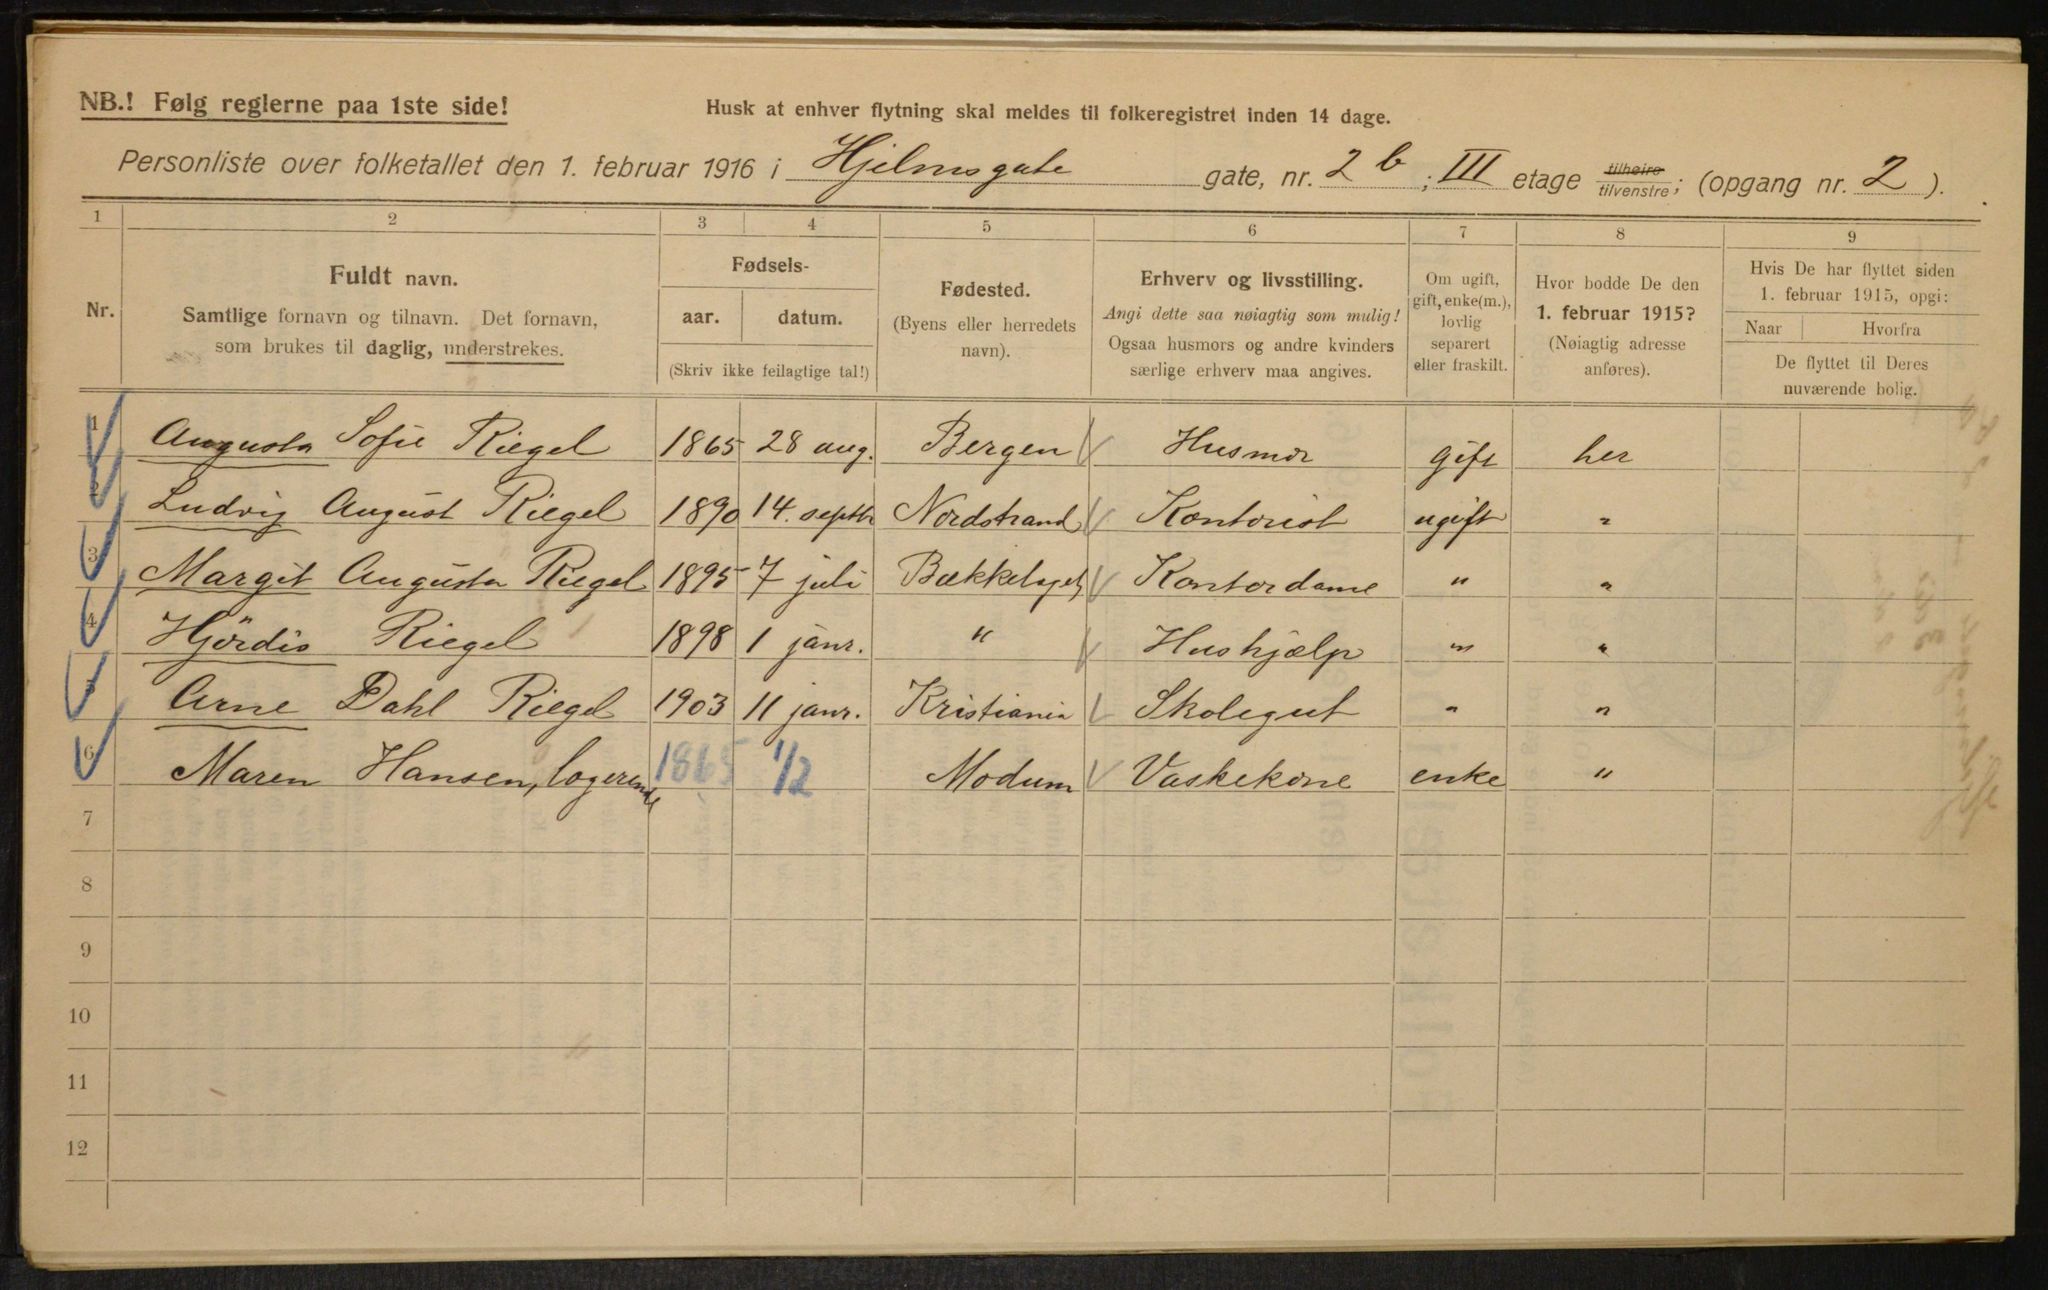 NB.! Følg reglerne paa 1ste side!
Husk at enhver flytning skal meldes til folkeregistret inden 14 dage.
Personliste over folketallet den 1. februar 1916 i Hjelmsgate gate, nr. 2 b ; III etage tilheire tilvenstre; (opgang nr. 2).
1 2 3 4 5 6 7 8 9
Nr.
Fuldt navn.
Samtlige fornavn og tilnavn. Det fornavn,
som brukes til daglig, understrekes.
Fødsels-
aar. datum.
(Skriv ikke feilagtige tal!)
Fødested.
(Byens eller herredets
navn).
Erhverv og livsstilling.
Angi dette saa nøiagtig som mulig!
Ogsaa husmors og andre kvinders
særlige erhverv maa angives.
Om ugift,
gift, enke(m.),
lovlig
separert
eller fraskilt.
Hvor bodde De den
1. februar 1915?
(Nøiagtig adresse
anføres).
Hvis De har flyttet siden
1. februar 1915, opgi:
Naar Hvorfra
De flyttet til Deres
nuværende bolig.
1 Augusta Sofie Riegel 1865 28 aug. Bergen Husmor gift her
2 Ludvig August Riegel 1890 14. septbr Nordstrand Kontorist ugift "
3 Margit Augusta Riegel 1895 7 juli Bækkelaget Kontordame " "
4 Hjördis Riegel 1898 1 janr. " Hushjælp " "
5 Arne Dahl Riegel 1903 11 janr. Kristiania Skolegut " "
6 Maren Hansen, logerende 1865 1/2 Modum Vaskekone enke "
7
8
9
10
11
12